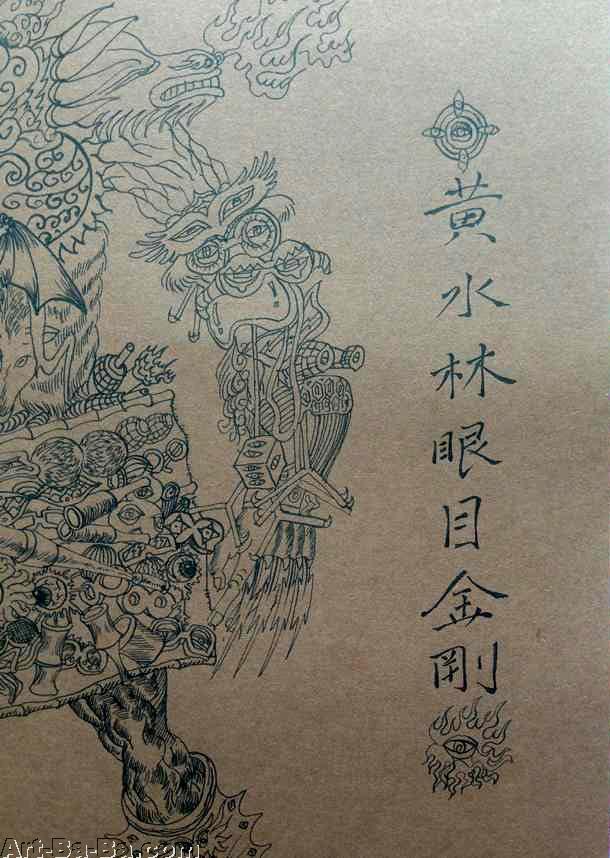 黄水林眼目金剛
Art-Ba-Ba.com